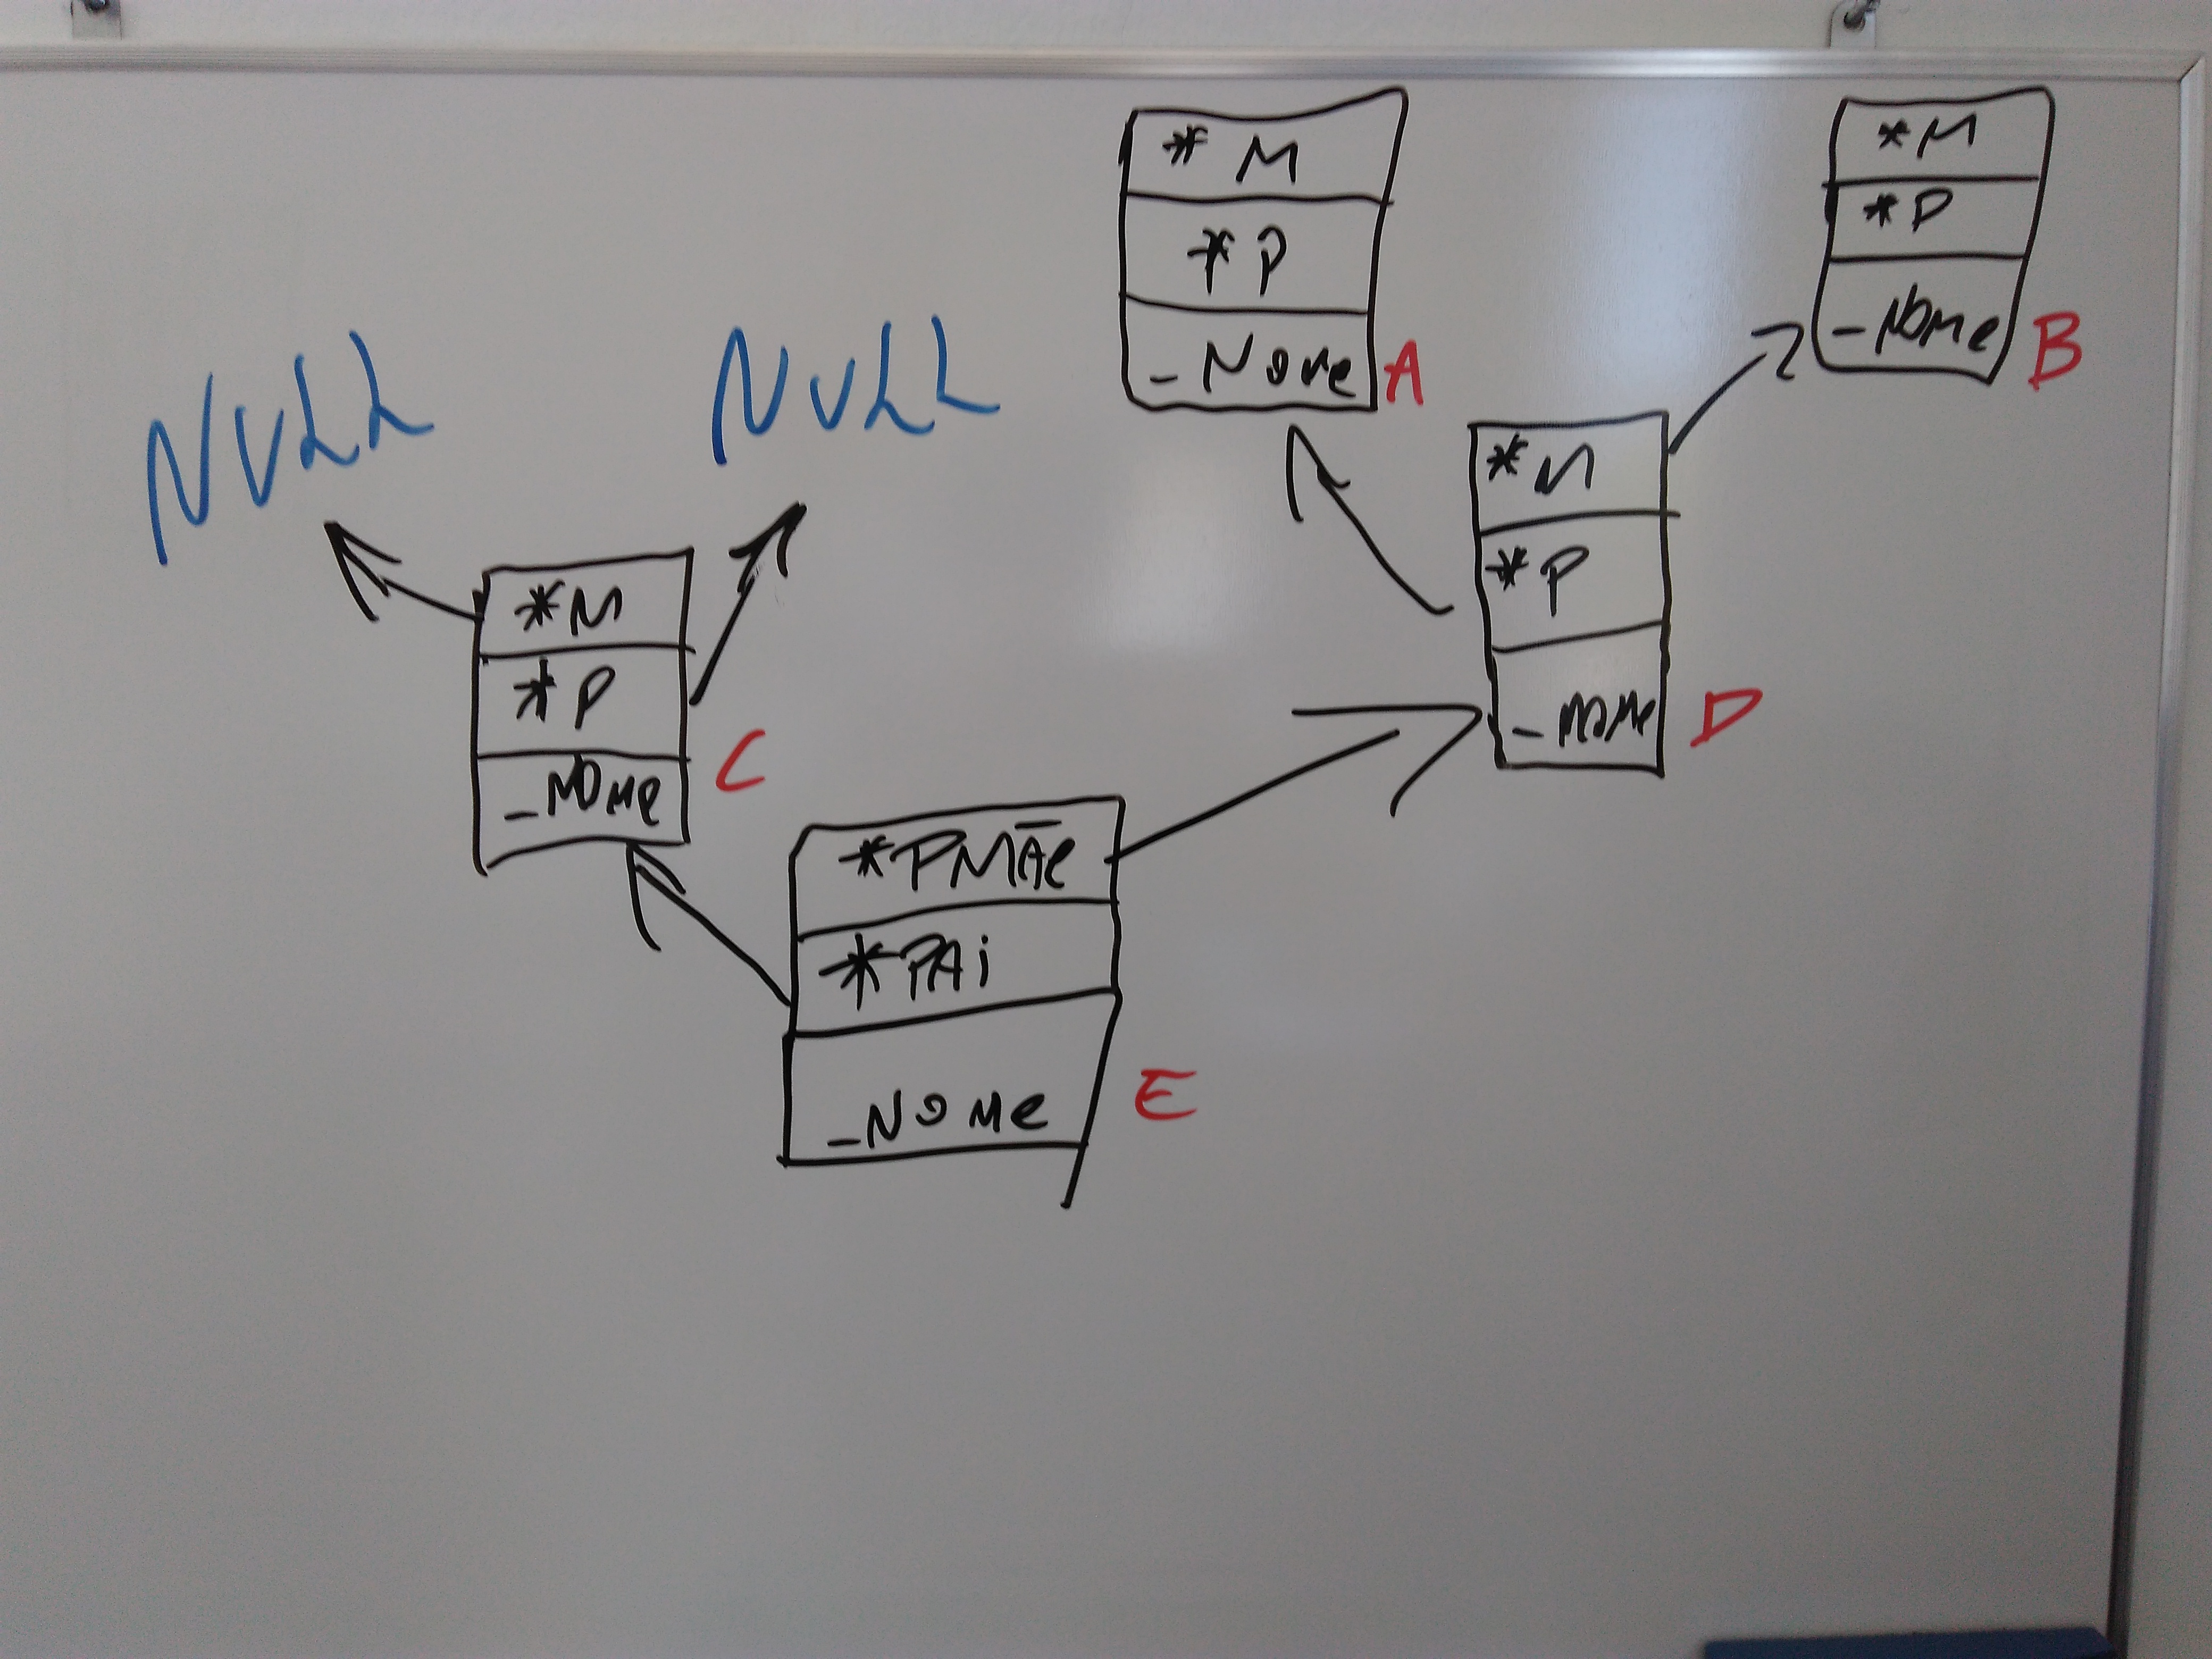 * M
* P
_ Nome
A
* M
* P
_ Nome
B
NULL
NULL
* M
* P
_ Nome
D
* M
* P
_ NOMe
C
* PMÃe
* PAi
_ NOMe
E